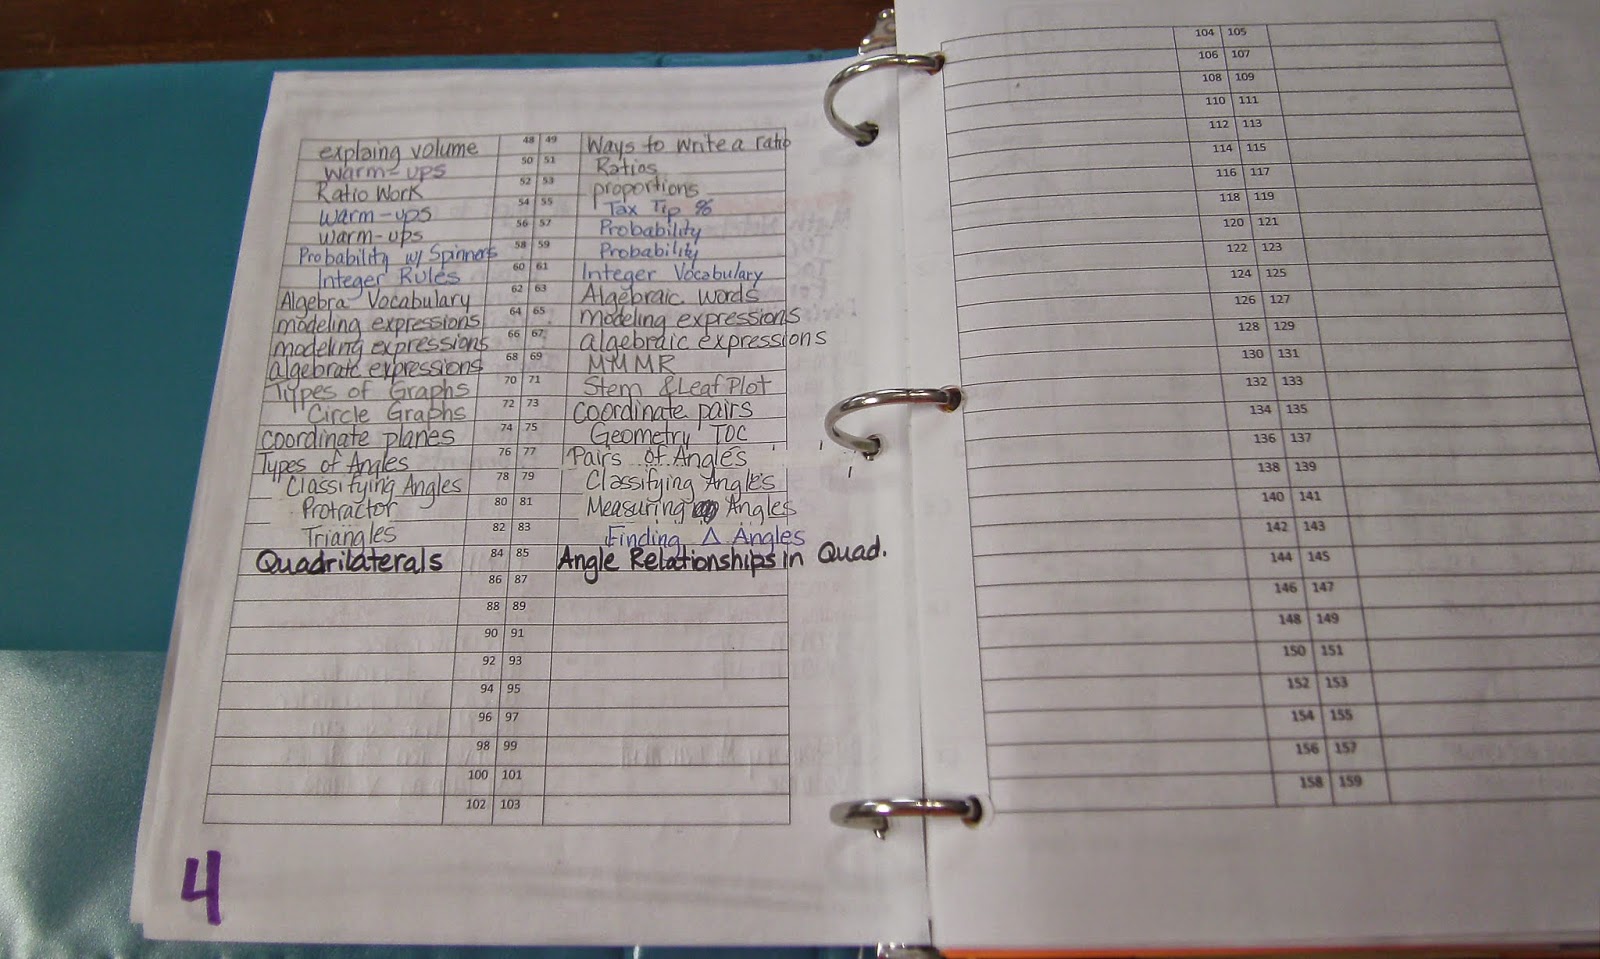 explaing volume 48 49 Ways to write a ratio
Warm-ups 50 51 Ratios
Ratio Work 52 53 proportions
Warm-ups 54 55 Tax Tip %
Warm-ups 56 57 Probability
Probability w/ Spinners 58 59 Probability
Integer Rules 60 61 Integer Vocabulary
Algebra Vocabulary 62 63 Algebraic words
modeling expressions 64 65 Modeling expressions
modeling expressions 66 67 algebraic expressions
algebraic expressions 68 69 MMMR
Types of Graphs 70 71 Stem & Leaf Plot
Circle Graphs 72 73 coordinate pairs
coordinate planes 74 75 Geometry TOC
Types of Angles 76 77 Pairs of Angles
Classifying Angles 78 79 Classifying Angles
Protractor 80 81 Measuring Angles
Triangles 82 83 Finding Δ Angles
Quadrilaterals 84 85 Angle Relationships in Quad.
86 87
88 89
90 91
92 93
94 95
96 97
98 99
100 101
102 103
4
104 105
106 107
108 109
110 111
112 113
114 115
116 117
118 119
120 121
122 123
124 125
126 127
128 129
130 131
132 133
134 135
136 137
138 139
140 141
142 143
144 145
146 147
148 149
150 151
152 153
154 155
156 157
158 159